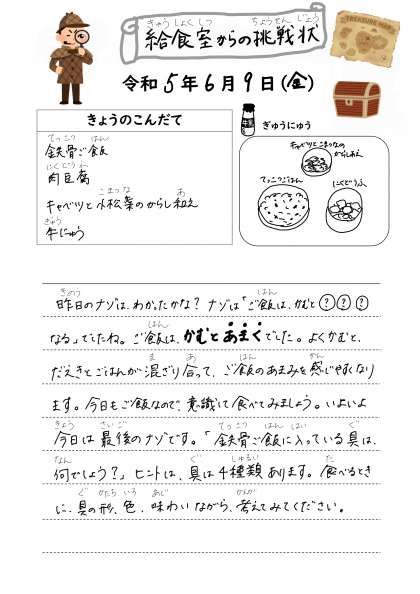 きゅうしょくしつ ちょうせんじょう
給食室からの挑戦状
TREASURE MAP
令和5年6月9日(金)
きょうのこんだて
てっこつ はん
鉄骨ご飯
にくどうふ
肉豆腐
こまつな あ
キャベツと小松菜のからし和え
ぎゅう
牛にゅう
ぎゅうにゅう
キャベツとこまつなの
からしあえ
てっこつごはん
にくどうふ
きのう はん
昨日のナゾは、わかったかな？ナゾは「ご飯は、かむと???
はん
なる」でしたね。ご飯は、かむとあまくでした。よくかむと、
ま あ はん かん
だえきとごはんが混ざり合って、ご飯のあまみを感じやすくなり
ます。今日もご飯なので、意識して食べてみましょう。いよいよ
きょう さいご てっこつ はん はい ぐ
今日は最後のナゾです。「鉄骨ご飯に入っている具は、
なん ぐ しゅるい た
何でしょう？」ヒントは、具は4種類あります。食べるとき
ぐ かたち いろ あじ かんが
に、具の形、色、味わいながら、考えてみてください。